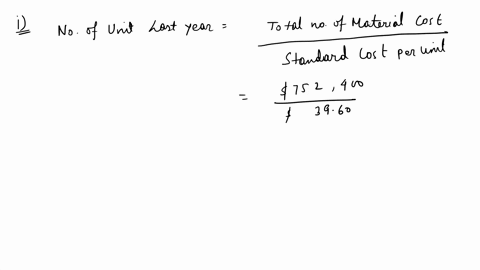 i) No. of Unit Last year = Total no. of Material Cost
Standard Cost per unit
= $752,400
$ 39.60